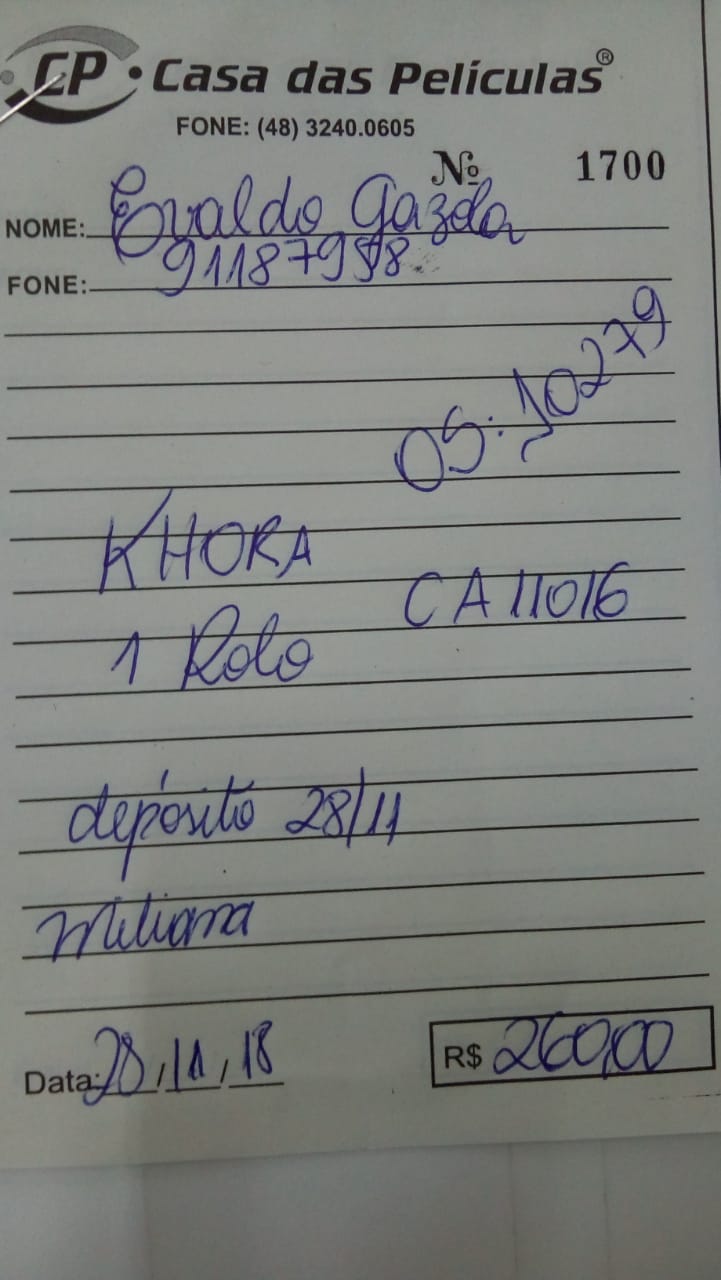 CP • Casa das Películas®
FONE: (48) 3240.0605
Nº 1700
NOME: Evaldo Gazola
FONE: 91187998
OS: 10279
KHORA
1 Rolo CA11016
depósito 28/11
Data: 28, 11, 18
R$ 260,00